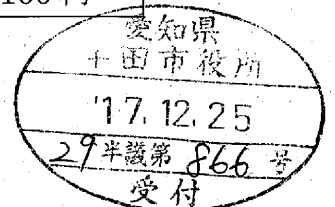 100円
愛知県
田市役所
'17.12.25
29半議第 866 号
受付